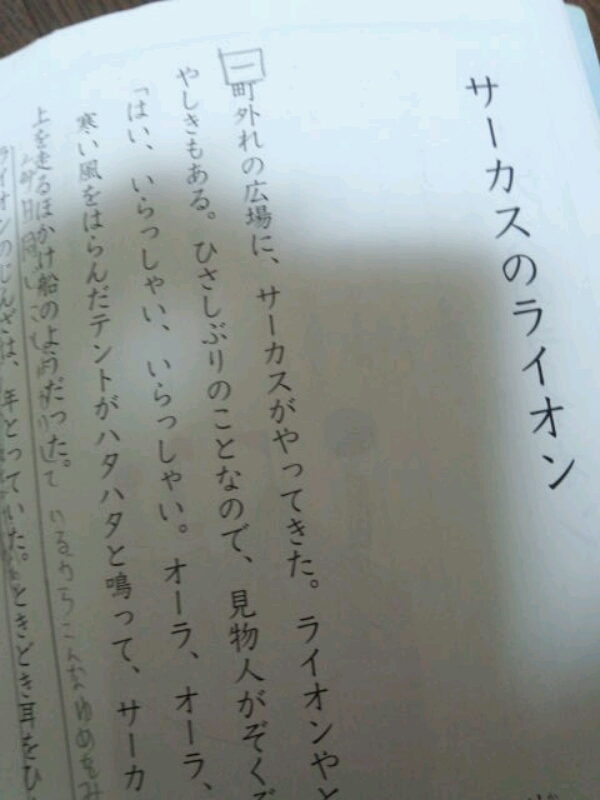 サーカスのライオン
一
町外れの広場に、サーカスがやってきた。ライオンやと
やしきもある。ひさしぶりのことなので、見物人がぞくぞ
「はい、いらっしゃい、いらっしゃい。オーラ、オーラ、
寒い風をはらんだテントがハタハタと鳴って、サーカ
上を走るほかけ船のようだった。
いるからこんなゆめをみ
ライオンのじんざは、年とっていた。ときどき耳をひ